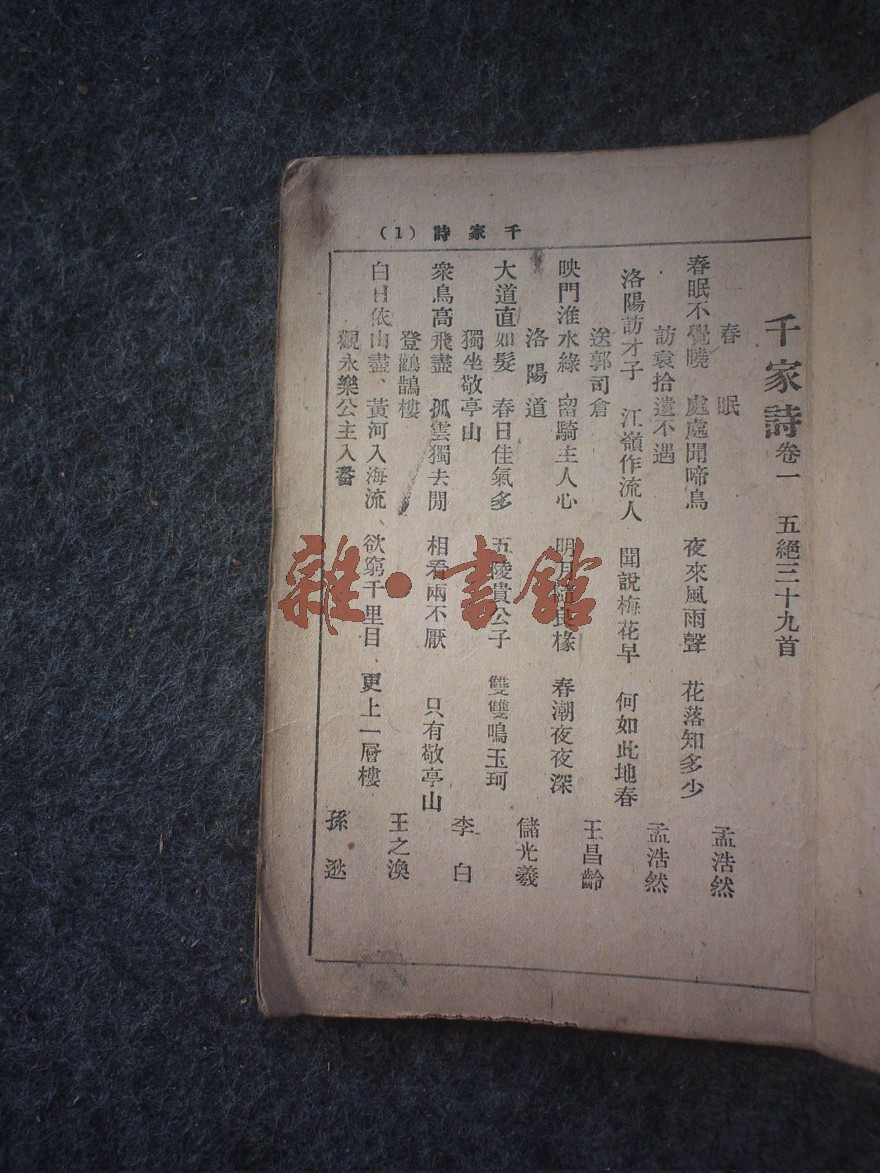 千家詩（1）
千家詩卷一　五絕三十九首
春眠　孟浩然
春眠不覺曉　處處聞啼鳥　夜來風雨聲　花落知多少
訪袁拾遺不遇　孟浩然
洛陽訪才子　江嶺作流人　聞說梅花早　何如此地春
送郭司倉　王昌齡
映門淮水綠　留騎主人心　明月　良椽　春潮夜夜深
洛陽道　儲光羲
大道直如髮　春日佳氣多　五陵貴公子　雙雙鳴玉珂
獨坐敬亭山　李白
衆鳥高飛盡　孤雲獨去閒　相看兩不厭　只有敬亭山
登鸛鵲樓　王之渙
白日依山盡、黃河入海流、欲窮千里目、更上一層樓
觀永樂公主入蕃　孫逖
雜·書館